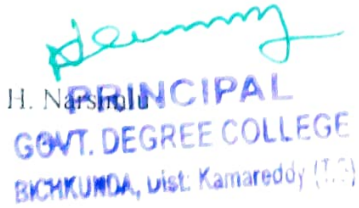 H. Narsimlu
PRINCIPAL
GOVT. DEGREE COLLEGE
BICHKUNDA, Dist: Kamareddy (T.S)